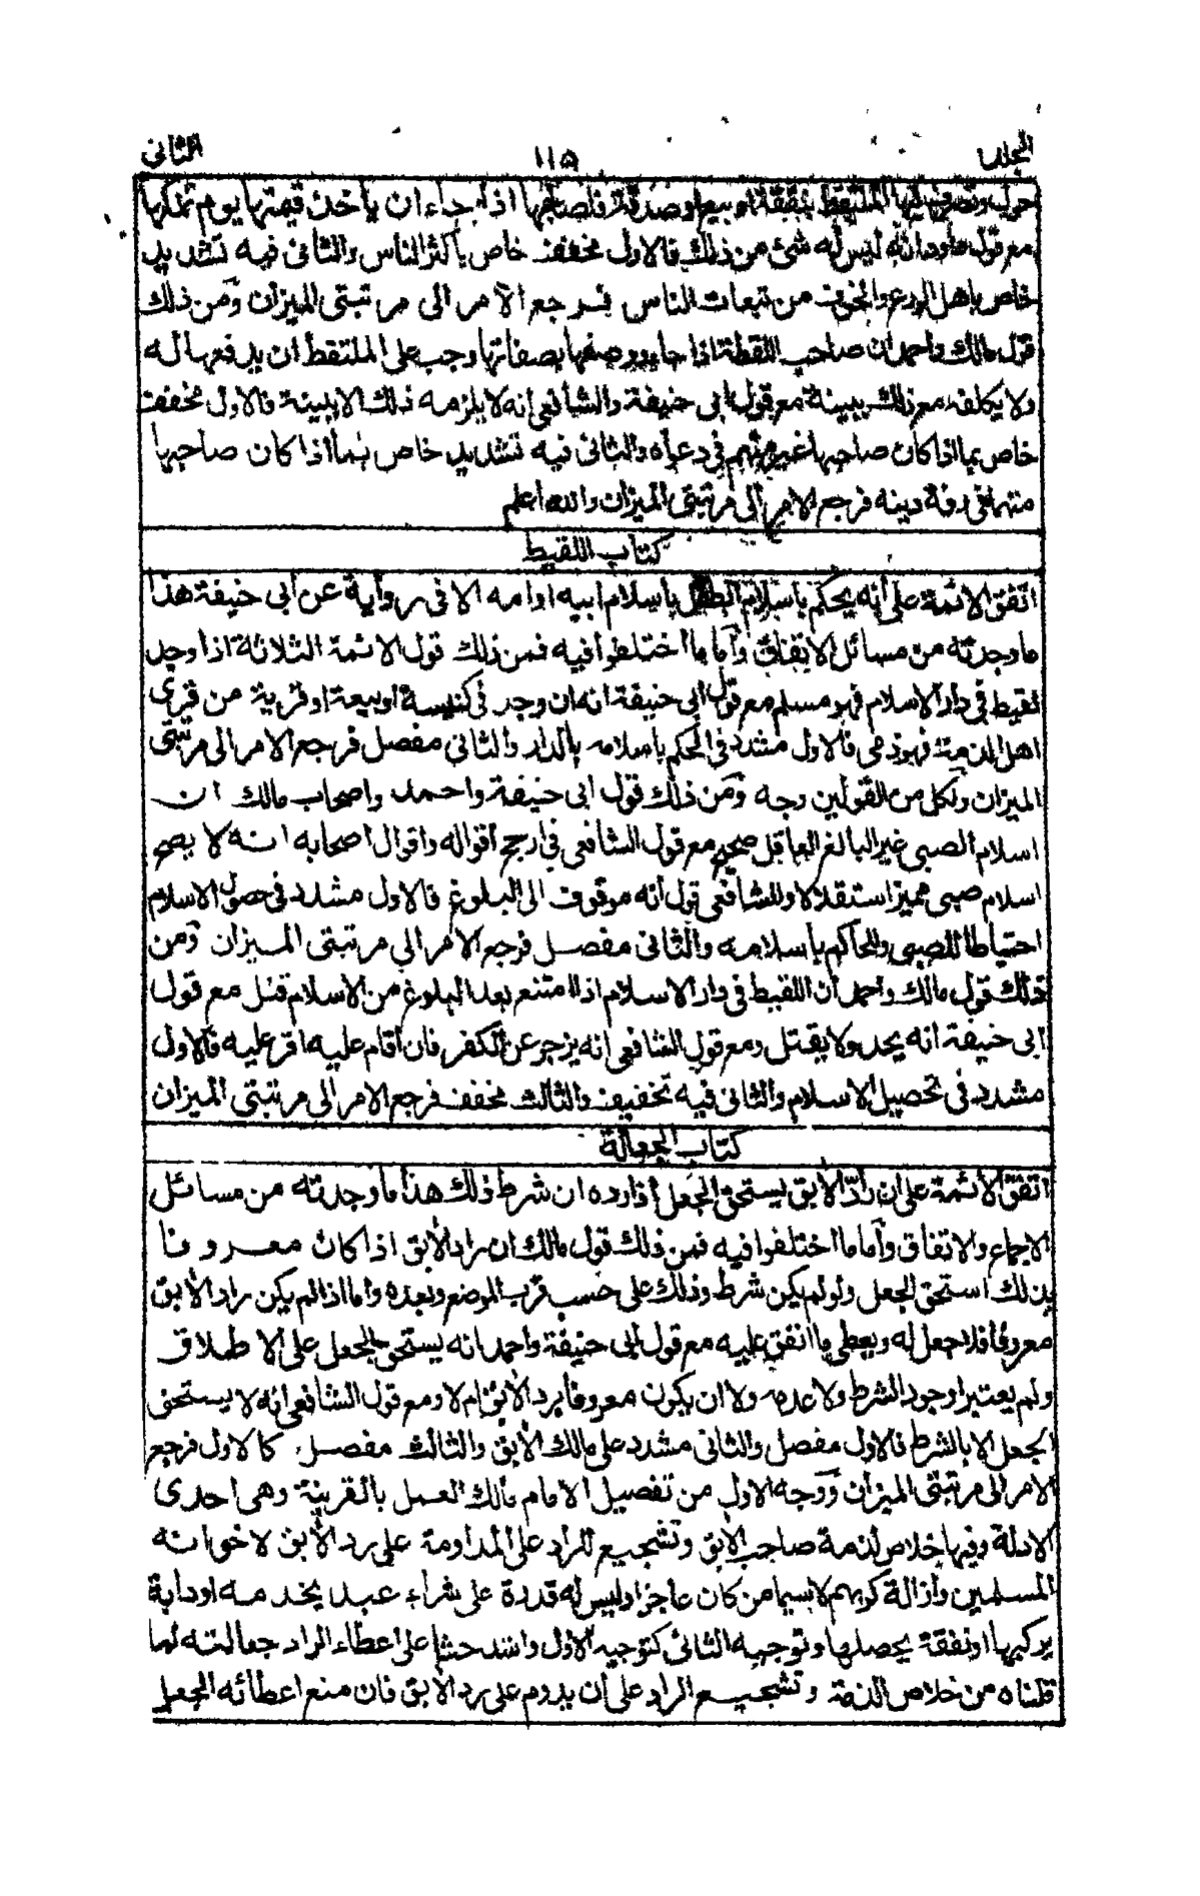 المجلد ١١٥ الثاني
حول وتصرف فيها الملتقط بنفقة او بيع او صدقة فلصاحبها اذا جاء ان ياخذ قيمتها يوم تملكها
مع قول داود انه ليس له شئ من ذلك فالاول مخفف خاص باكثر الناس والثانى فيه تشديد
خاص باهل الورع والخوف من تبعات الناس فرجع الامر الى مرتبتى الميزان ومن ذلك
قول مالك واحمد ان صاحب اللقطة اذا جاء ووصفها بصفاتها وجب على الملتقط ان يدفعها له
ولا يكلفه مع ذلك ببينة مع قول ابى حنيفة والشافعى انه لا يلزمه ذلك الا ببينة فالاول مخفف
خاص بما اذا كان صاحبها غير متهم فى دعواه والثانى فيه تشديد خاص بما اذا كان صاحبها
متهما فى رقة دينه فرجع الامر الى مرتبتى الميزان والله اعلم
كتاب اللقيط
اتفق الائمة على انه يحكم باسلام الطفل باسلام ابيه او امه الا فى رواية عن ابى حنيفة هذا
ما وجدته من مسائل الاتفاق وأما ما اختلفوا فيه فمن ذلك قول الائمة الثلاثة اذا وجد
لقيط فى دار الاسلام فهو مسلم مع قول ابى حنيفة انه ان وجد فى كنيسة او بيعة او قرية من قرى
اهل الذمة فهو ذمى فالاول مشدد فى الحكم باسلامه بالدار والثانى مفصل فرجع الامر الى مرتبتى
الميزان ولكل من القولين وجه ومن ذلك قول ابى حنيفة واحمد واصحاب مالك ان
اسلام الصبى غير البالغ العاقل صحيح مع قول الشافعى فى ارجح أقواله واقوال اصحابه انه لا يصح
اسلام صبى مميز استقلالا وللشافعى قول أنه موقوف الى البلوغ فالاول مشدد فى حصول الاسلام
احتياطا للصبى وللحاكم باسلامه والثانى مفصل فرجع الامر الى مرتبتى الميزان ومن
ذلك قول مالك واحمد ان اللقيط فى دار الاسلام اذا امتنع بعد البلوغ من الاسلام قتل مع قول
ابى حنيفة انه يحد ولا يقتل ومع قول الشافعى انه يزجر عن الكفر فان أقام عليه اقر عليه فالاول
مشدد فى تحصيل الاسلام والثانى فيه تخفيف والثالث مخفف فرجع الامر الى مرتبتى الميزان
كتاب الجعالة
اتفق الائمة على ان رادّ الآبق يستحق الجعل اذا رده ان شرط ذلك هذا ما وجدته من مسائل
الاجماع والاتفاق وأما ما اختلفوا فيه فمن ذلك قول مالك ان راد الآبق اذا كان معروفا
بذلك استحق الجعل ولو لم يكن شرط وذلك على حسب قرب الموضع وبعده وأما اذا لم يكن راد الآبق
معروفا فلا جعل له ويعطى ما انفق عليه مع قول ابى حنيفة واحمد انه يستحق الجعل على الاطلاق
ولم يعتبرا وجود الشرط ولا عدمه ولا ان يكون معروفا برد الآبق ام لا ومع قول الشافعى انه لا يستحق
الجعل الا بالشرط فالاول مفصل والثانى مشدد على مالك الآبق والثالث مفصل كالاول فرجع
الامر الى مرتبتى الميزان ووجه الاول من تفصيل الامام مالك العمل بالقرينة وهى احدى
الادلة وفيها خلاص لذمة صاحب الآبق وتشجيع للراد على المداومة على رد الآبق لاخوانه
المسلمين وازالة كربهم لا سيما من كان عاجزا وليس له قدرة على شراء عبد يخدمه او دابة
يركبها او نفقة يحصلها وتوجيه الثانى كتوجيه الاول واشد حثا على اعطاء الراد جعالته لما
قلناه من خلاص الذمة وتشجيع الراد على أن يدوم على رد الآبق فان منع اعطائه الجعل